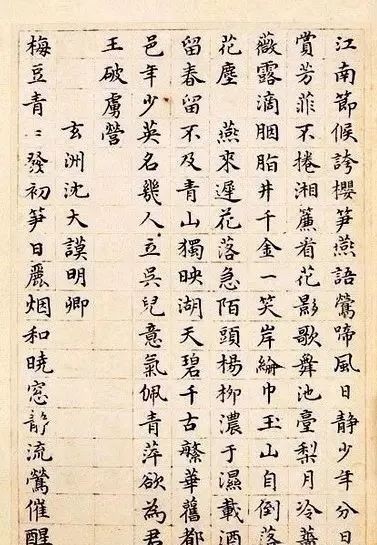 江南節候誇櫻笋燕語鶯啼風日静少年分日
賞芳菲不捲湘簾看花影歌舞池臺梨月冷華
薇露滴胭脂井千金一笑岸綸巾玉山自倒落
花塵 燕來遲花落急陌頭楊柳濃于濕載酒
留春留不及青山獨映湖天碧千古繁華舊都
邑年少英名幾人立吳兒意氣佩青萍欲為君
王破虜營
玄洲沈大謨明卿
梅豆青〻發初笋日麗烟和曉窓静流鶯催醒